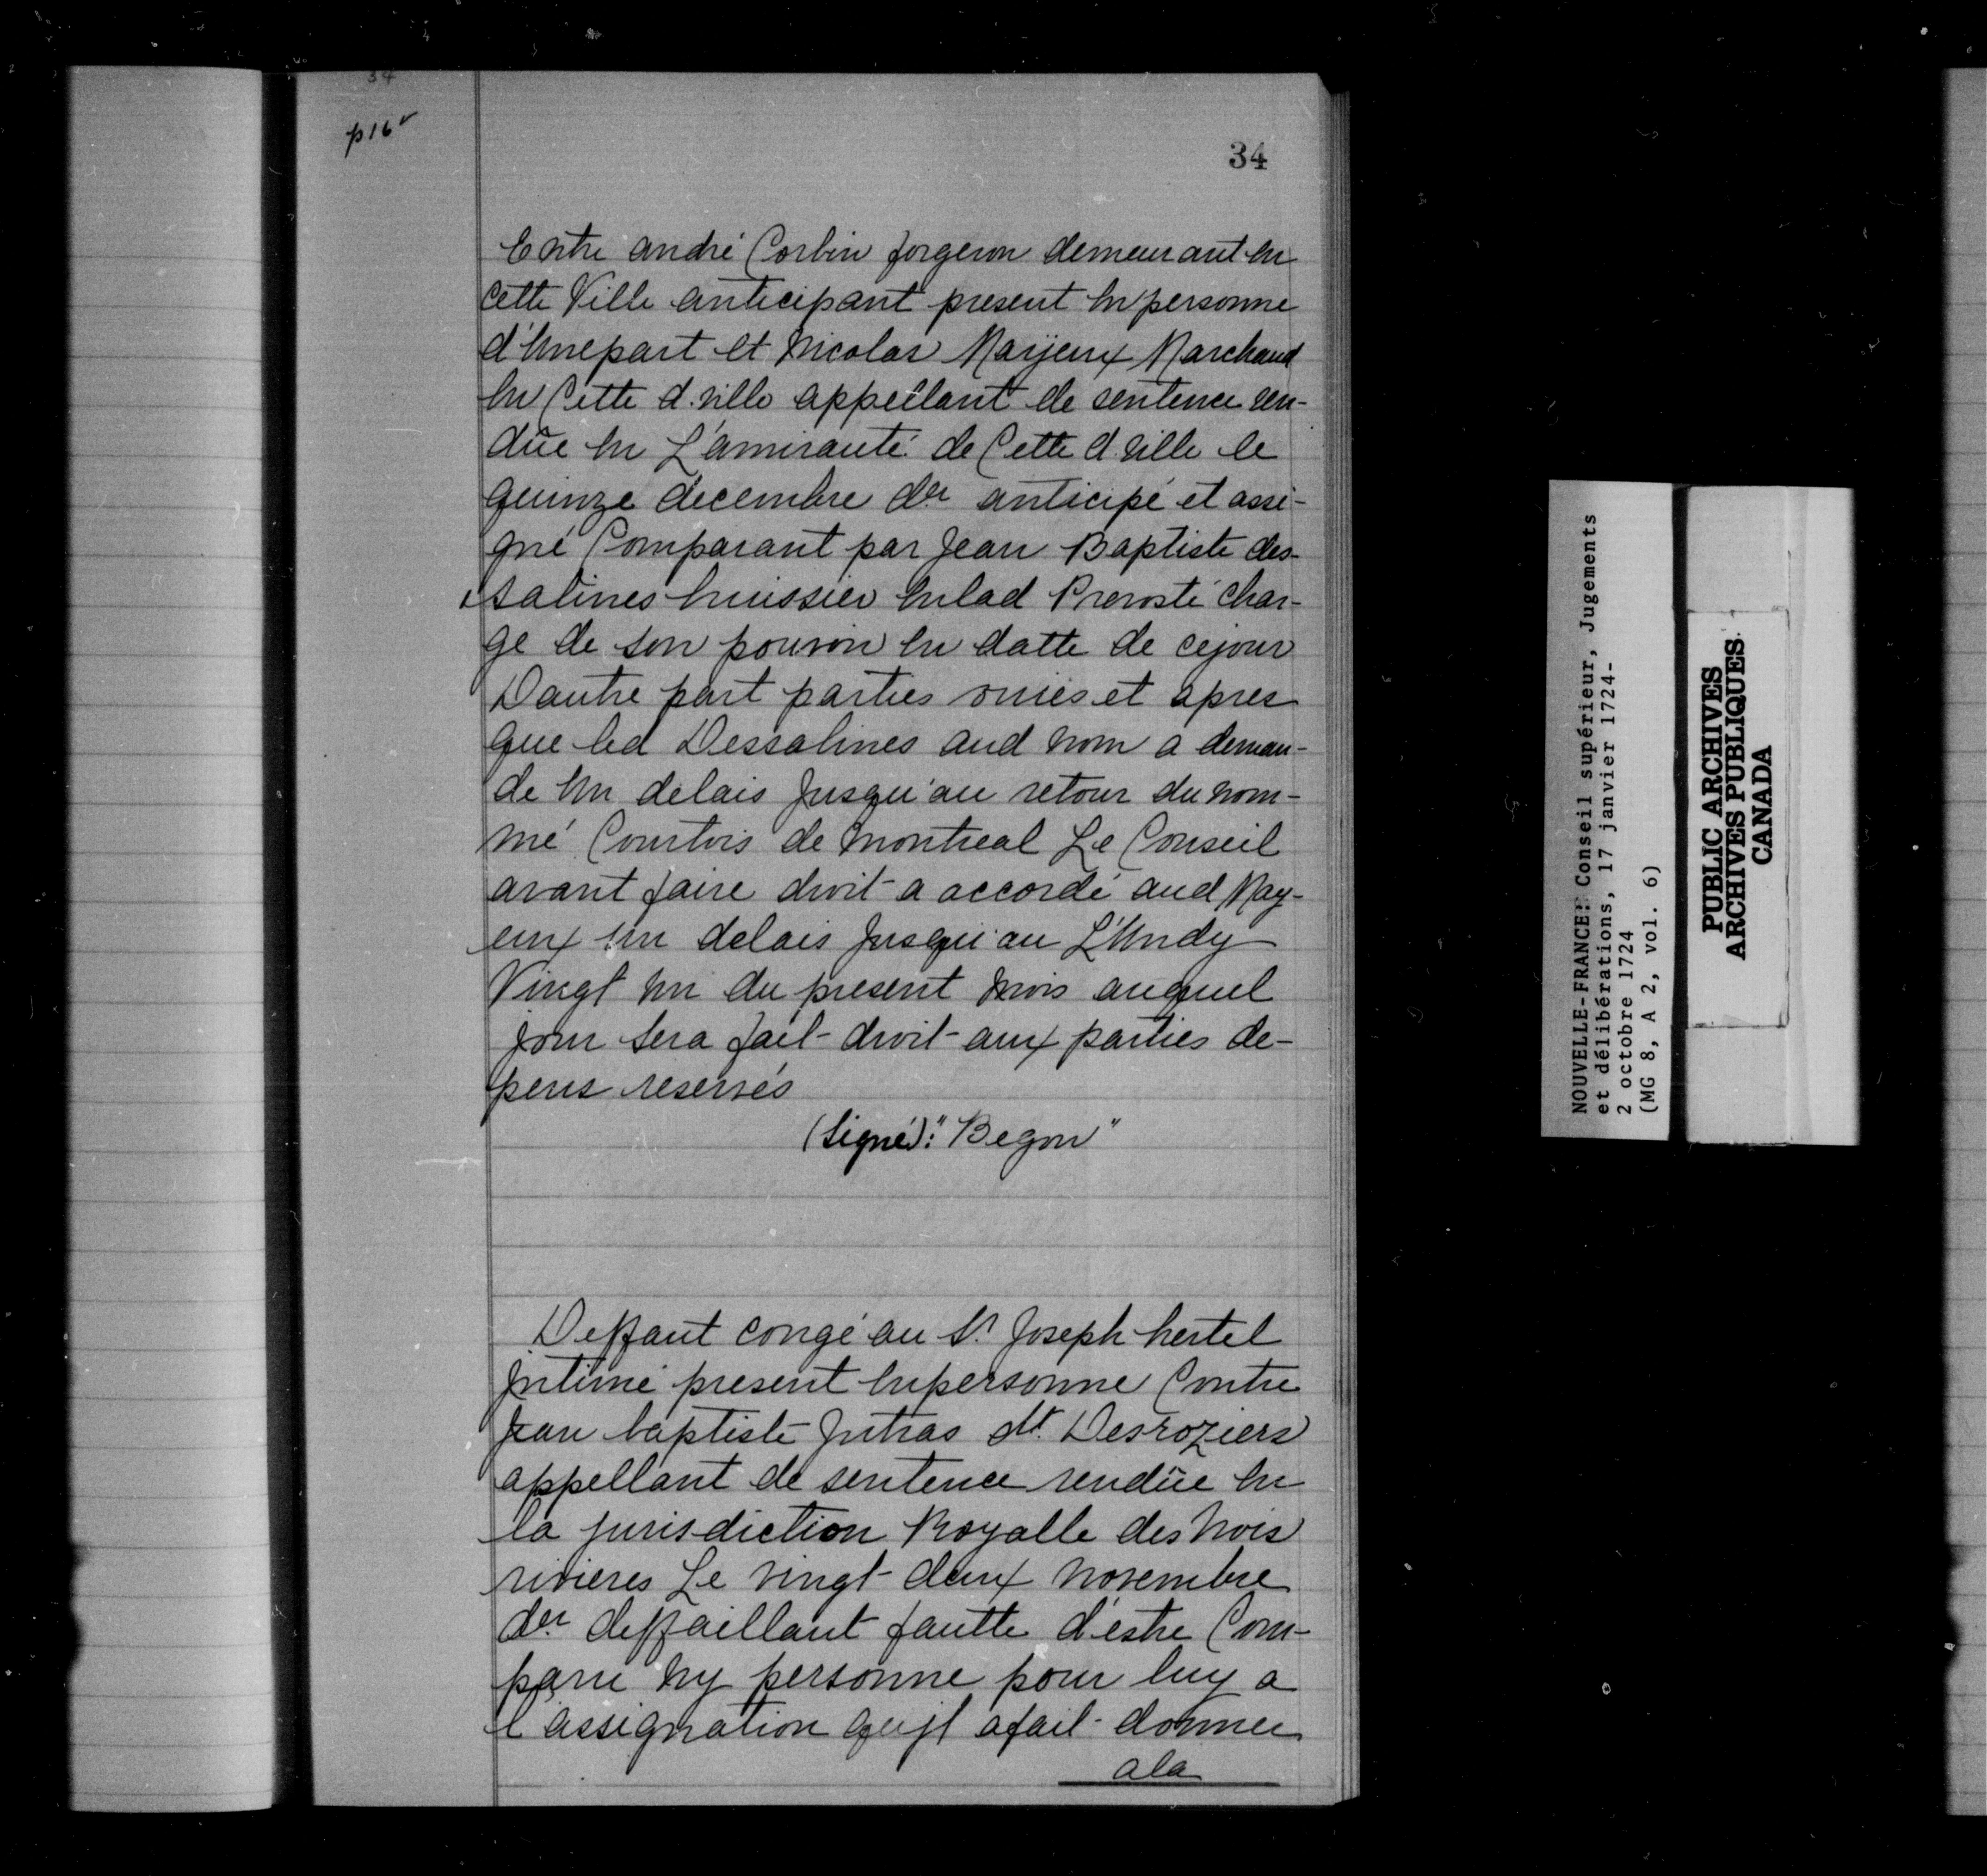 34
p16v
34
Entre andré Corbin forgeron demeurant En
cette Ville anticipant present En personne
d'Unepart et Nicolas Mayeux Marchand
En Cette d. ville appellant de sentence ren-
düe En L'amirauté de Cette d. ville le
quinze decembre der anticipé et assi-
gné Comparant par Jean Baptiste des-
salines huissier Enlad Prevosté char-
gé de son pouvoir En datte de cejour
Dautre part parties ouies et apres
que led Dessalines aud nom a deman-
dé Un délais Jusqu'au retour du nom-
mé Courtois de Montreal Le Conseil
avant faire droit a accordé aud May-
eux Un delais Jusqu'au L'Undy
Vingt Un du present Mois auquel
jour sera fait droit aux parties de-
pens reservés
(Signé): "Begon"
Deffaut congé au Sr. Joseph hertel
Jntimé present Enpersonne Contre
Jean baptiste Jutras dt. Desroziers
appellant de sentence rendüe En
la jurisdiction Royalle des trois
rivieres Le vingt deux novembre
der deffaillant fautte d'estre Com-
paru Ny personne pour luy a
l'assignation qu'jl afait donner
ala
NOUVELLE-FRANCE: Conseil supérieur, Jugements
et délibérations, 17 janvier 1724-
2 octobre 1724
(MG 8, A 2, vol. 6)
PUBLIC ARCHIVES
ARCHIVES PUBLIQUES
CANADA